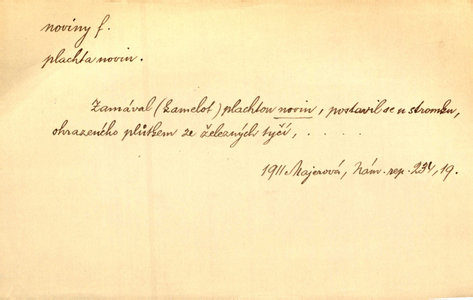 noviny f.
plachta novin.
Zamával (kamelot) plachtou novin, postavil se u stromku,
ohrazeného plůtkem ze železných tyčí, . . . . .
1911 Majerová, Nám. rep. 234, 19.